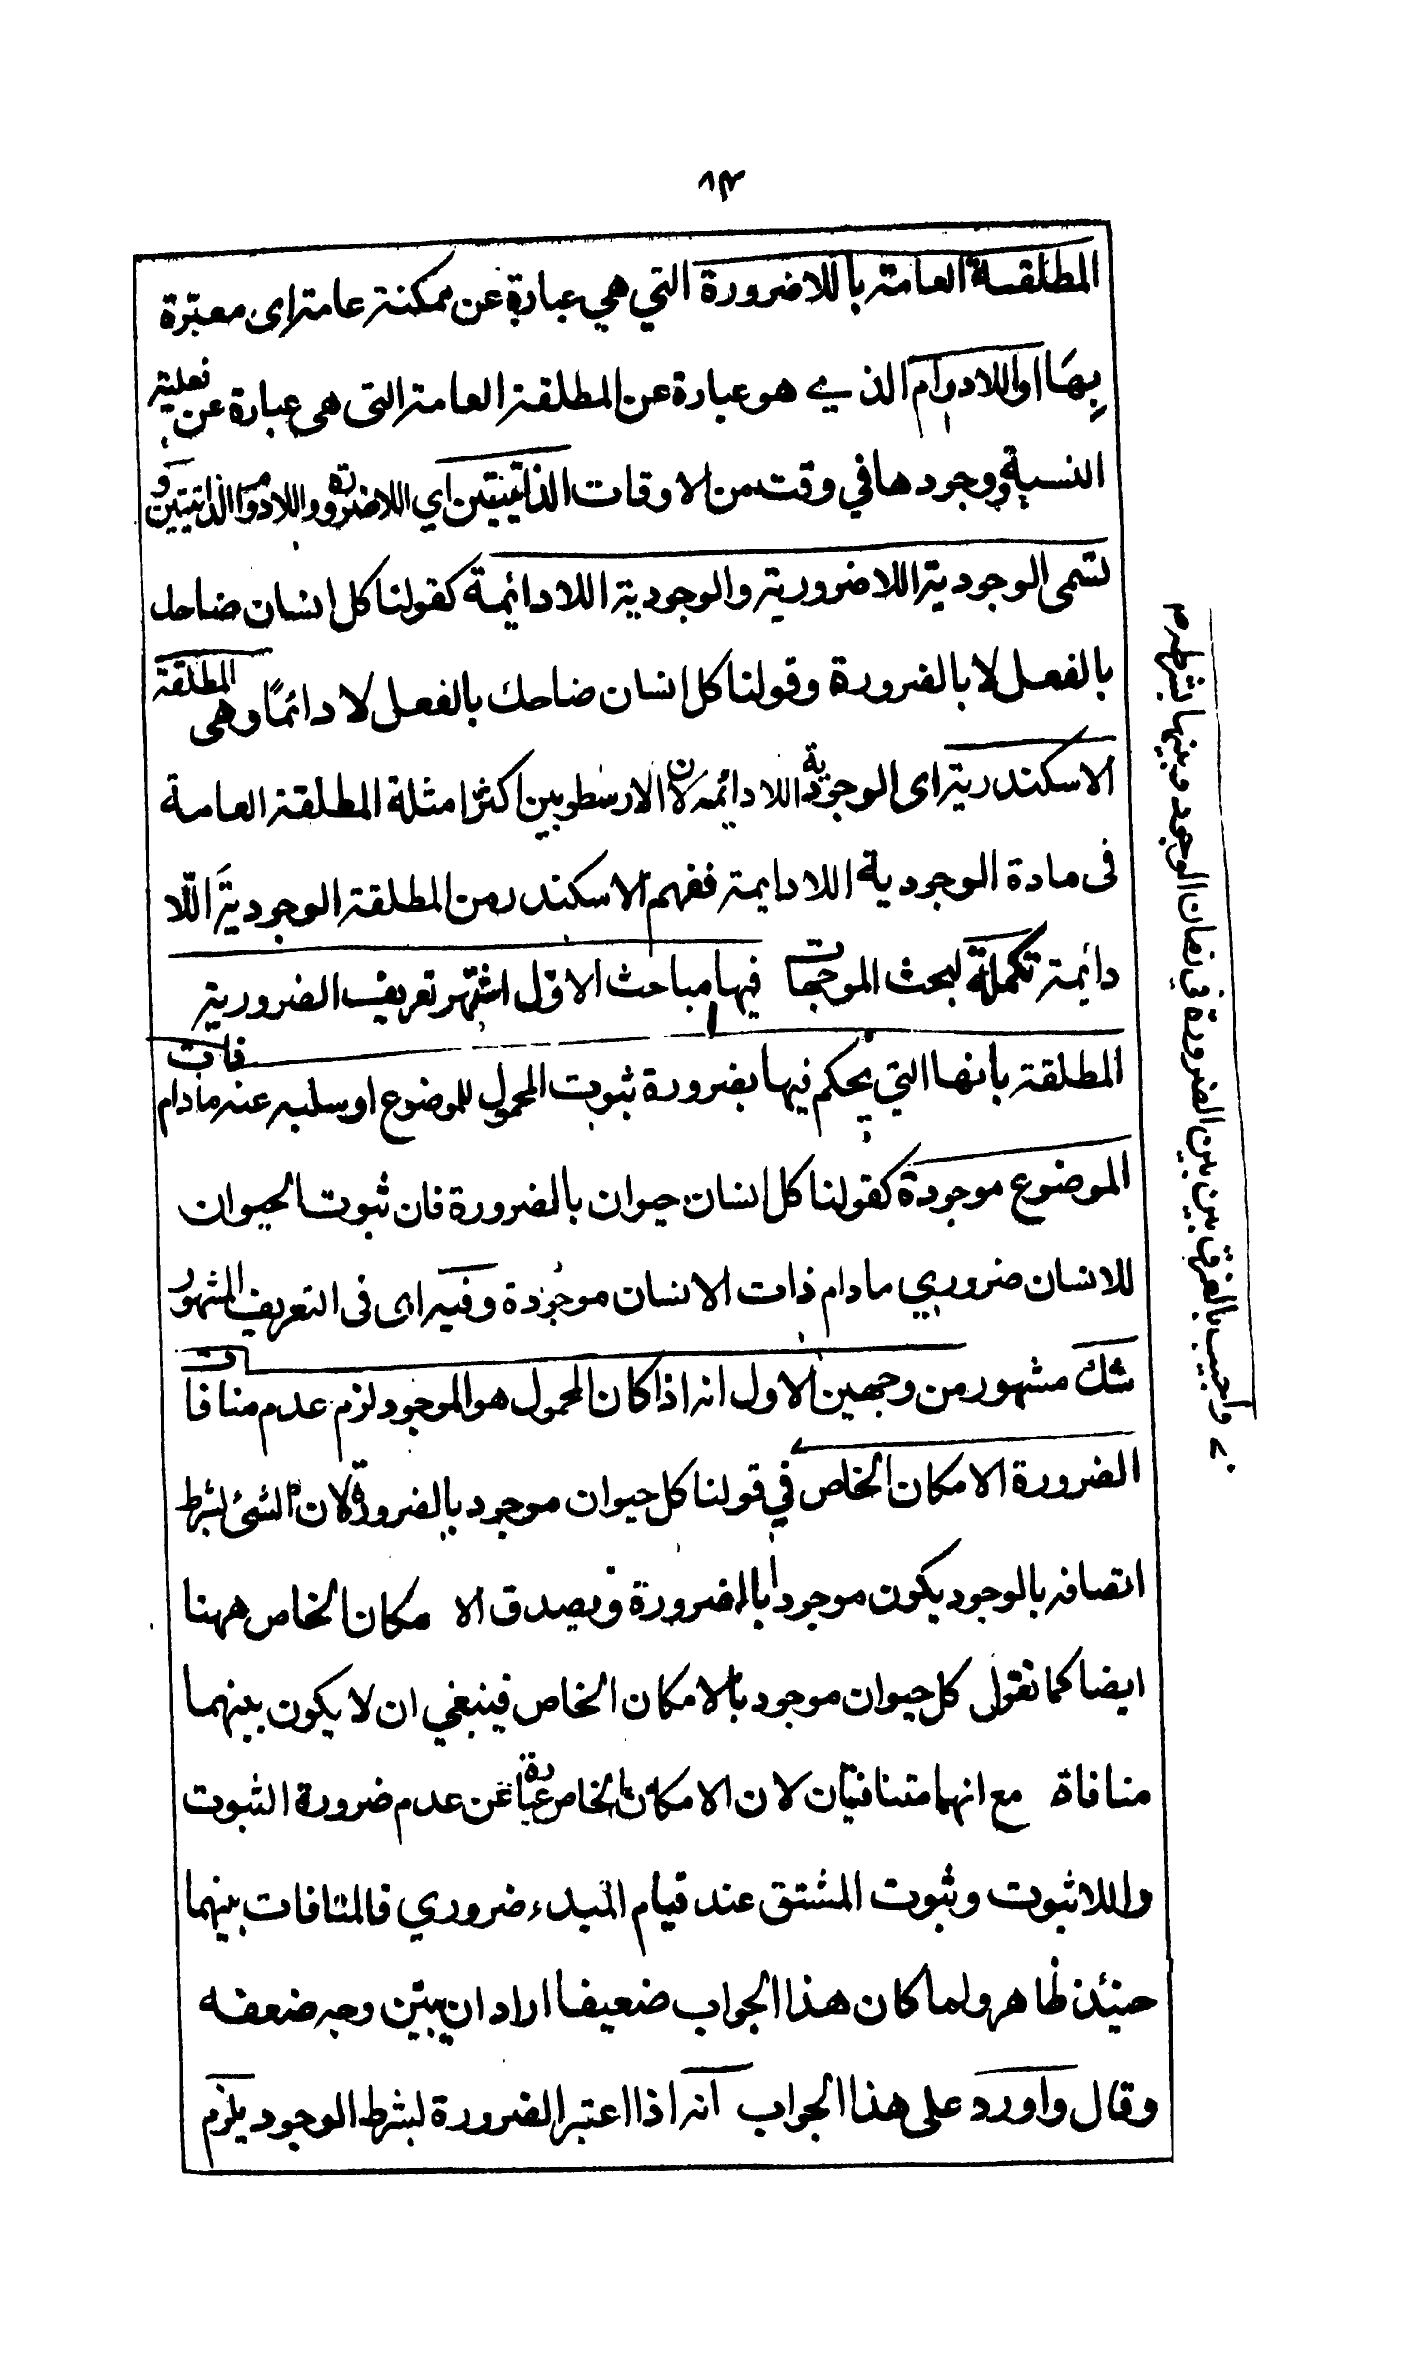 ٨٣
المطلقة العامة باللاضرورة التي هي عبارة عن ممكنة عامة اى معتبرة
بها او اللادوام الذي هو عبارة عن المطلقة العامة التى هى عبارة عن فعلية
النسبة ووجودها في وقت من الاوقات الذاتيتين اي اللاضرورة واللادوام الذاتيتين و
تسمى الوجودية اللاضرورية والوجودية اللادائمة كقولنا كل انسان ضاحك
بالفعل لا بالضرورة وقولنا كل انسان ضاحك بالفعل لا دائمًا وهى المطلقة
الاسكندرية اى الوجودية اللادائمه لان الارسطوبين اكثر امثلة المطلقة العامة
فى مادة الوجودية اللادايمة ففهم الاسكندر من المطلقة الوجودية اللا
دائمة تكملة لبحث الموجهات فيها مباحث الاول اشتهر تعريف الضرورية
المطلقة بانها التي يحكم فيها بضرورة ثبوت المحمول للموضوع او سلبه عنه مادام ذات
الموضوع موجودة كقولنا كل انسان حيوان بالضرورة فان ثبوت الحيوان
للانسان ضروري مادام ذات الانسان موجودة وفيه اى فى التعريف المشهور
شك مشهور من وجهين الاول انه اذا كان المحمول هو الموجود لزم عدم منافات
الضرورة الامكان الخاص في قولنا كل حيوان موجود بالضرورة لان الشئ بشرط
اتصافه بالوجود يكون موجودا بالضرورة ويصدق الا مكان الخاص ههنا
ايضا كما نقول كل حيوان موجود بالامكان الخاص فينبغي ان لا يكون بينهما
منافاة مع انهما متنافيان لان الامكان الخاص عبارة عن عدم ضرورة الثبوت
واللاثبوت وثبوت المشتق عند قيام المبدء ضروري فالمنافات بينهما
حينئذ ظاهر ولما كان هذا الجواب ضعيفا اراد ان يبين وجه ضعفه
وقال واورد على هذا الجواب انه اذا اعتبر الضرورة لبشرط الوجود يلزم
واجيب بالفرق بين الضرورة في زمان الوجود وبينها بشرطه م